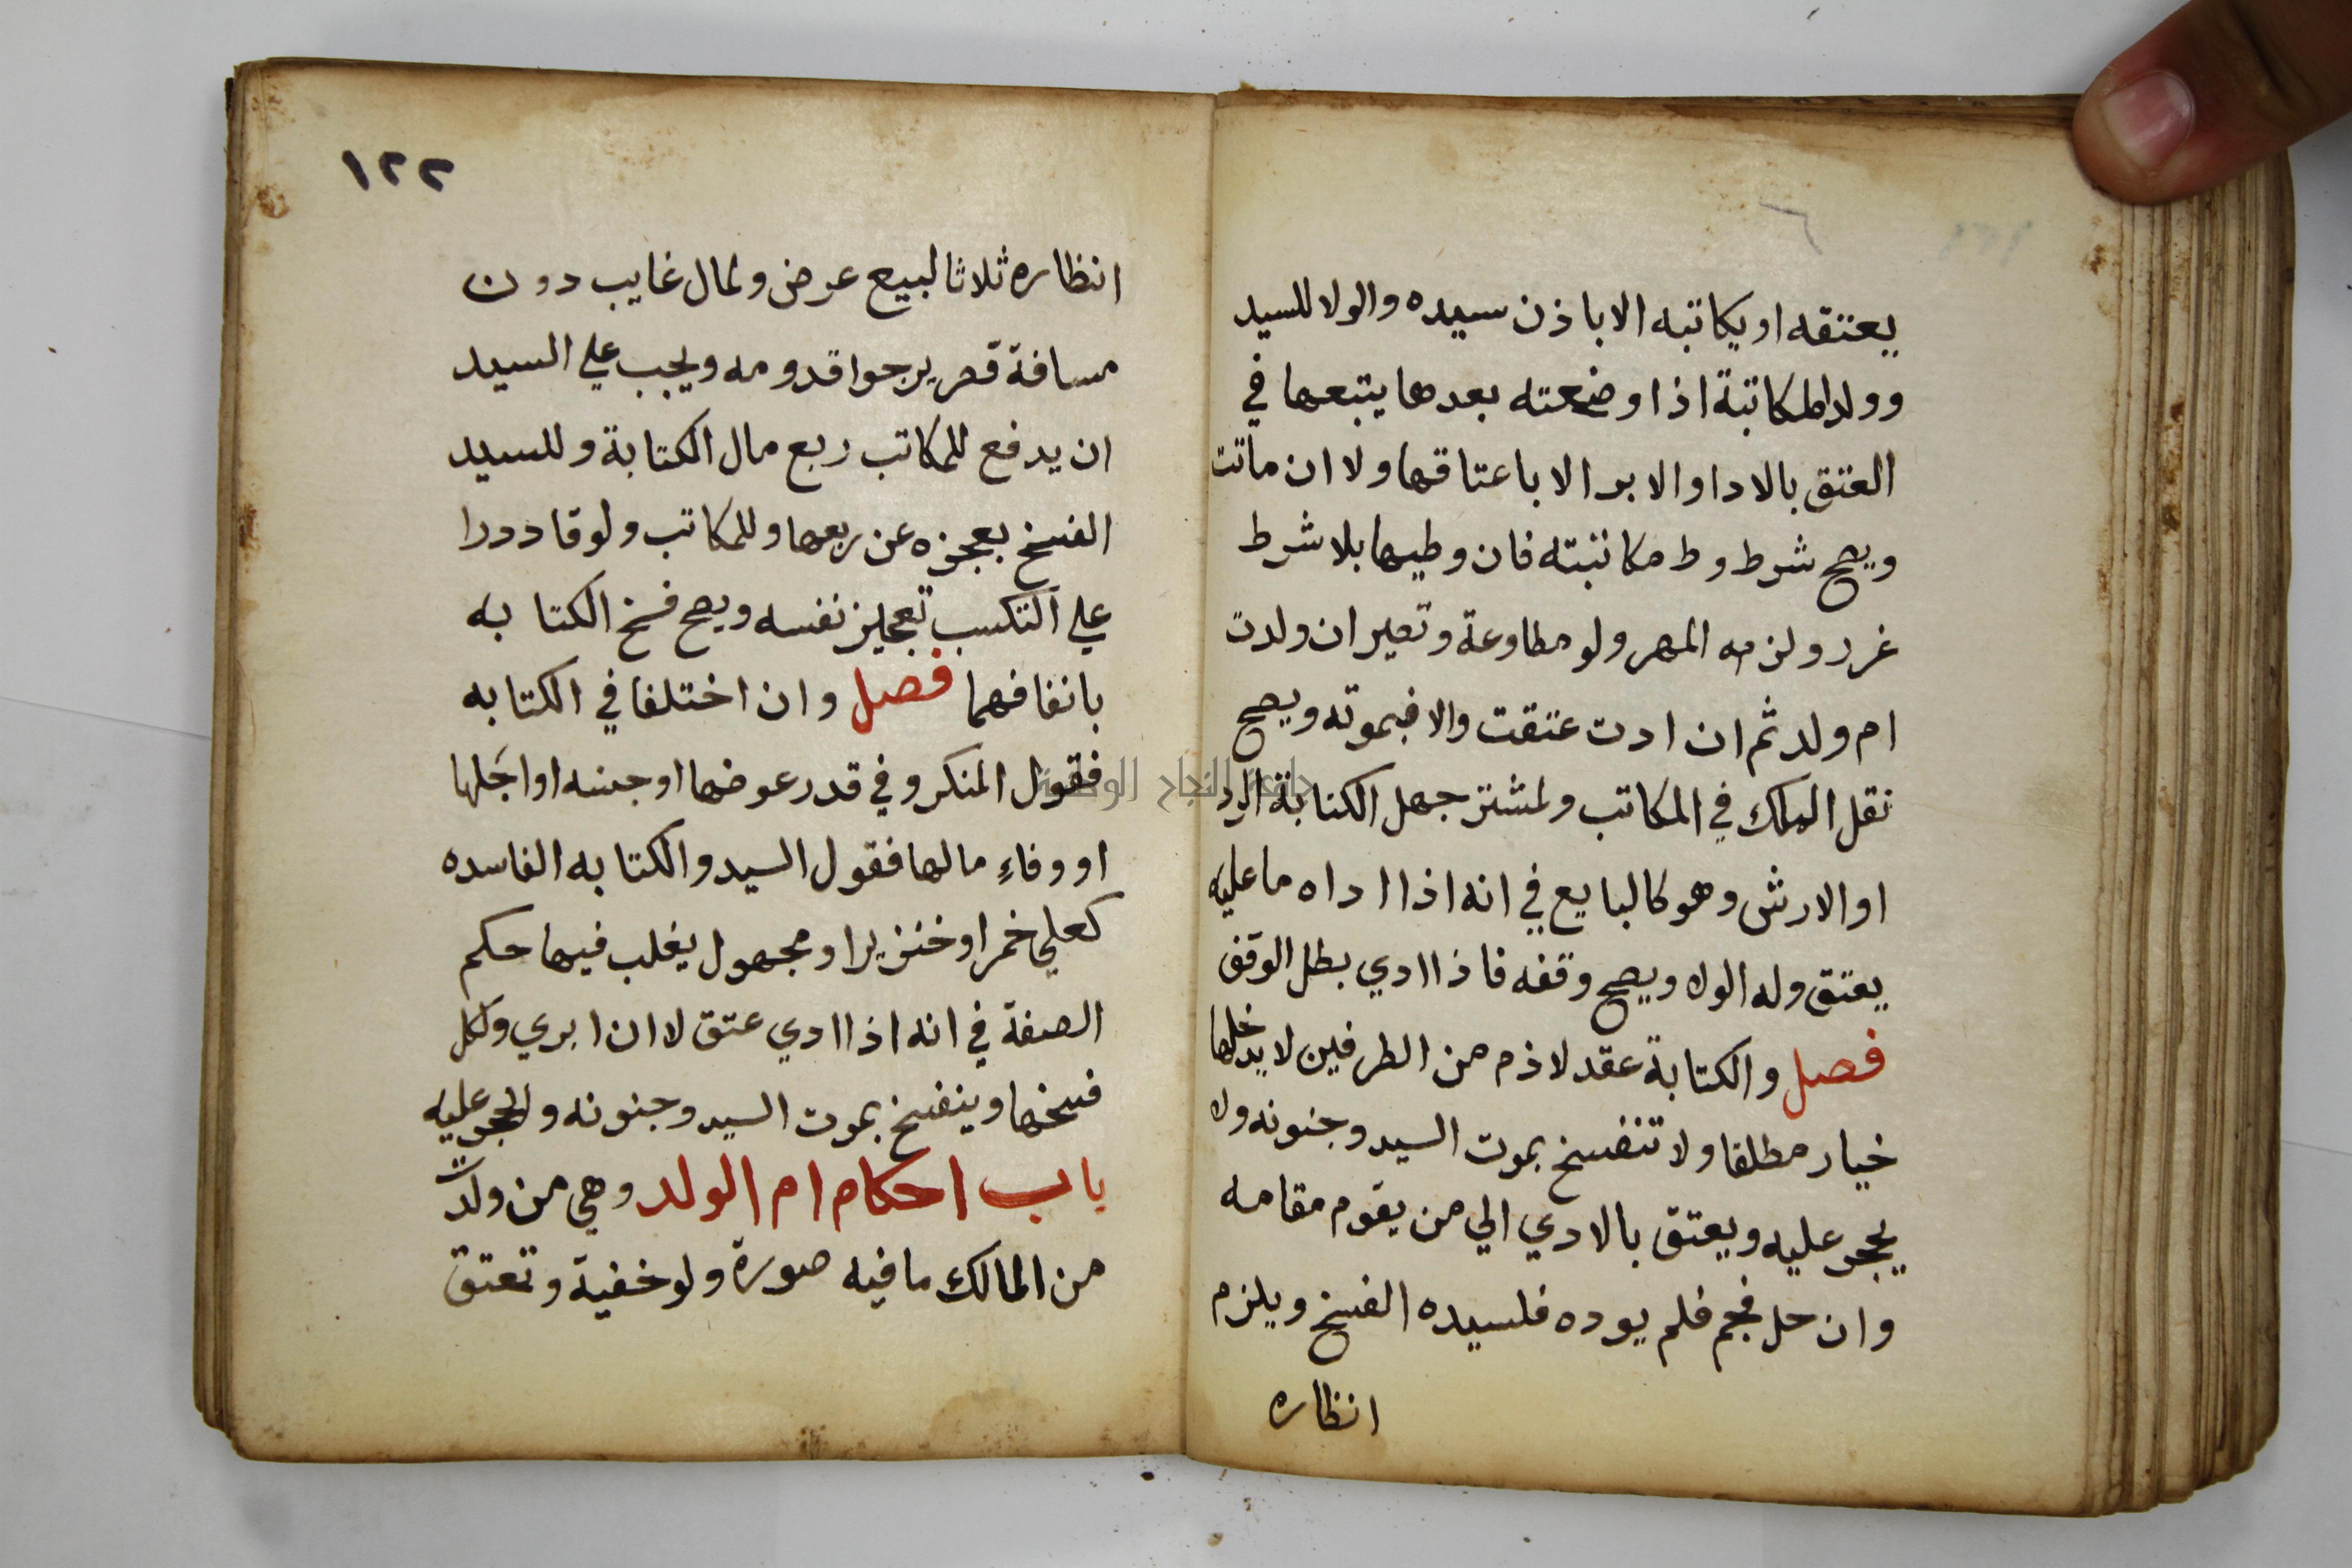 يعتقه او يكاتبه الا باذن سيده والولا للسيد
وولد المكاتبة اذا وضعته بعدها يتبعها في
العتق بالادا والابرا لا باعتاقها ولا ان ماتت
ويصح شرط وط مكاتبته فان وطيها بلا شرط
غرر ولزمه المهر ولو مطاوعة وتصير ان ولدت
ام ولد ثم ان ادت عتقت والا فبموته ويصح
نقل الملك في المكاتب ولمشتر جهل الكتابة الرد
او الارش وهو كالبايع في انه اذا اداه ما عليه
يعتق وله الولا ويصح وقفه فاذا ادي بطل الوقف
فصل والكتابة عقد لازم من الطرفين لا يدخلها
خيار مطلقا ولا تنفسخ بموت السيد وجنونه ولا
يحجر عليه ويعتق بالادي الي من يقوم مقامه
وان حل نجم فلم يوده فلسيده الفسخ ويلزم
انظاره
١٢٢
انظاره ثلاثا لبيع عرض ولمال غايب دون
مسافة قصر يرجوا قدومه ويجب علي السيد
ان يدفع للمكاتب ربع مال الكتابة وللسيد
الفسخ بعجزه عن ربعها وللمكاتب ولو قادررا
علي التكسب تعجيز نفسه ويصح فسخ الكتابه
باتفاقهما فصل وان اختلفا في الكتابه
فقول المنكر وفي قدر عوضها او جنسه او اجلها
او وفاء مالها فقول السيد والكتابه الفاسده
كعلي خمر او خنزير او مجهول يغلب فيها حكم
الصفة في انه اذا ادي عتق لا ان ابري ولكل
فسخها وينفسخ بموت السيد وجنونه والحجر عليه
باب احكام ام الولد وهي من ولدت
من المالك ما فيه صورة ولو خفية وتعتق
جامعة النجاح الوطنية